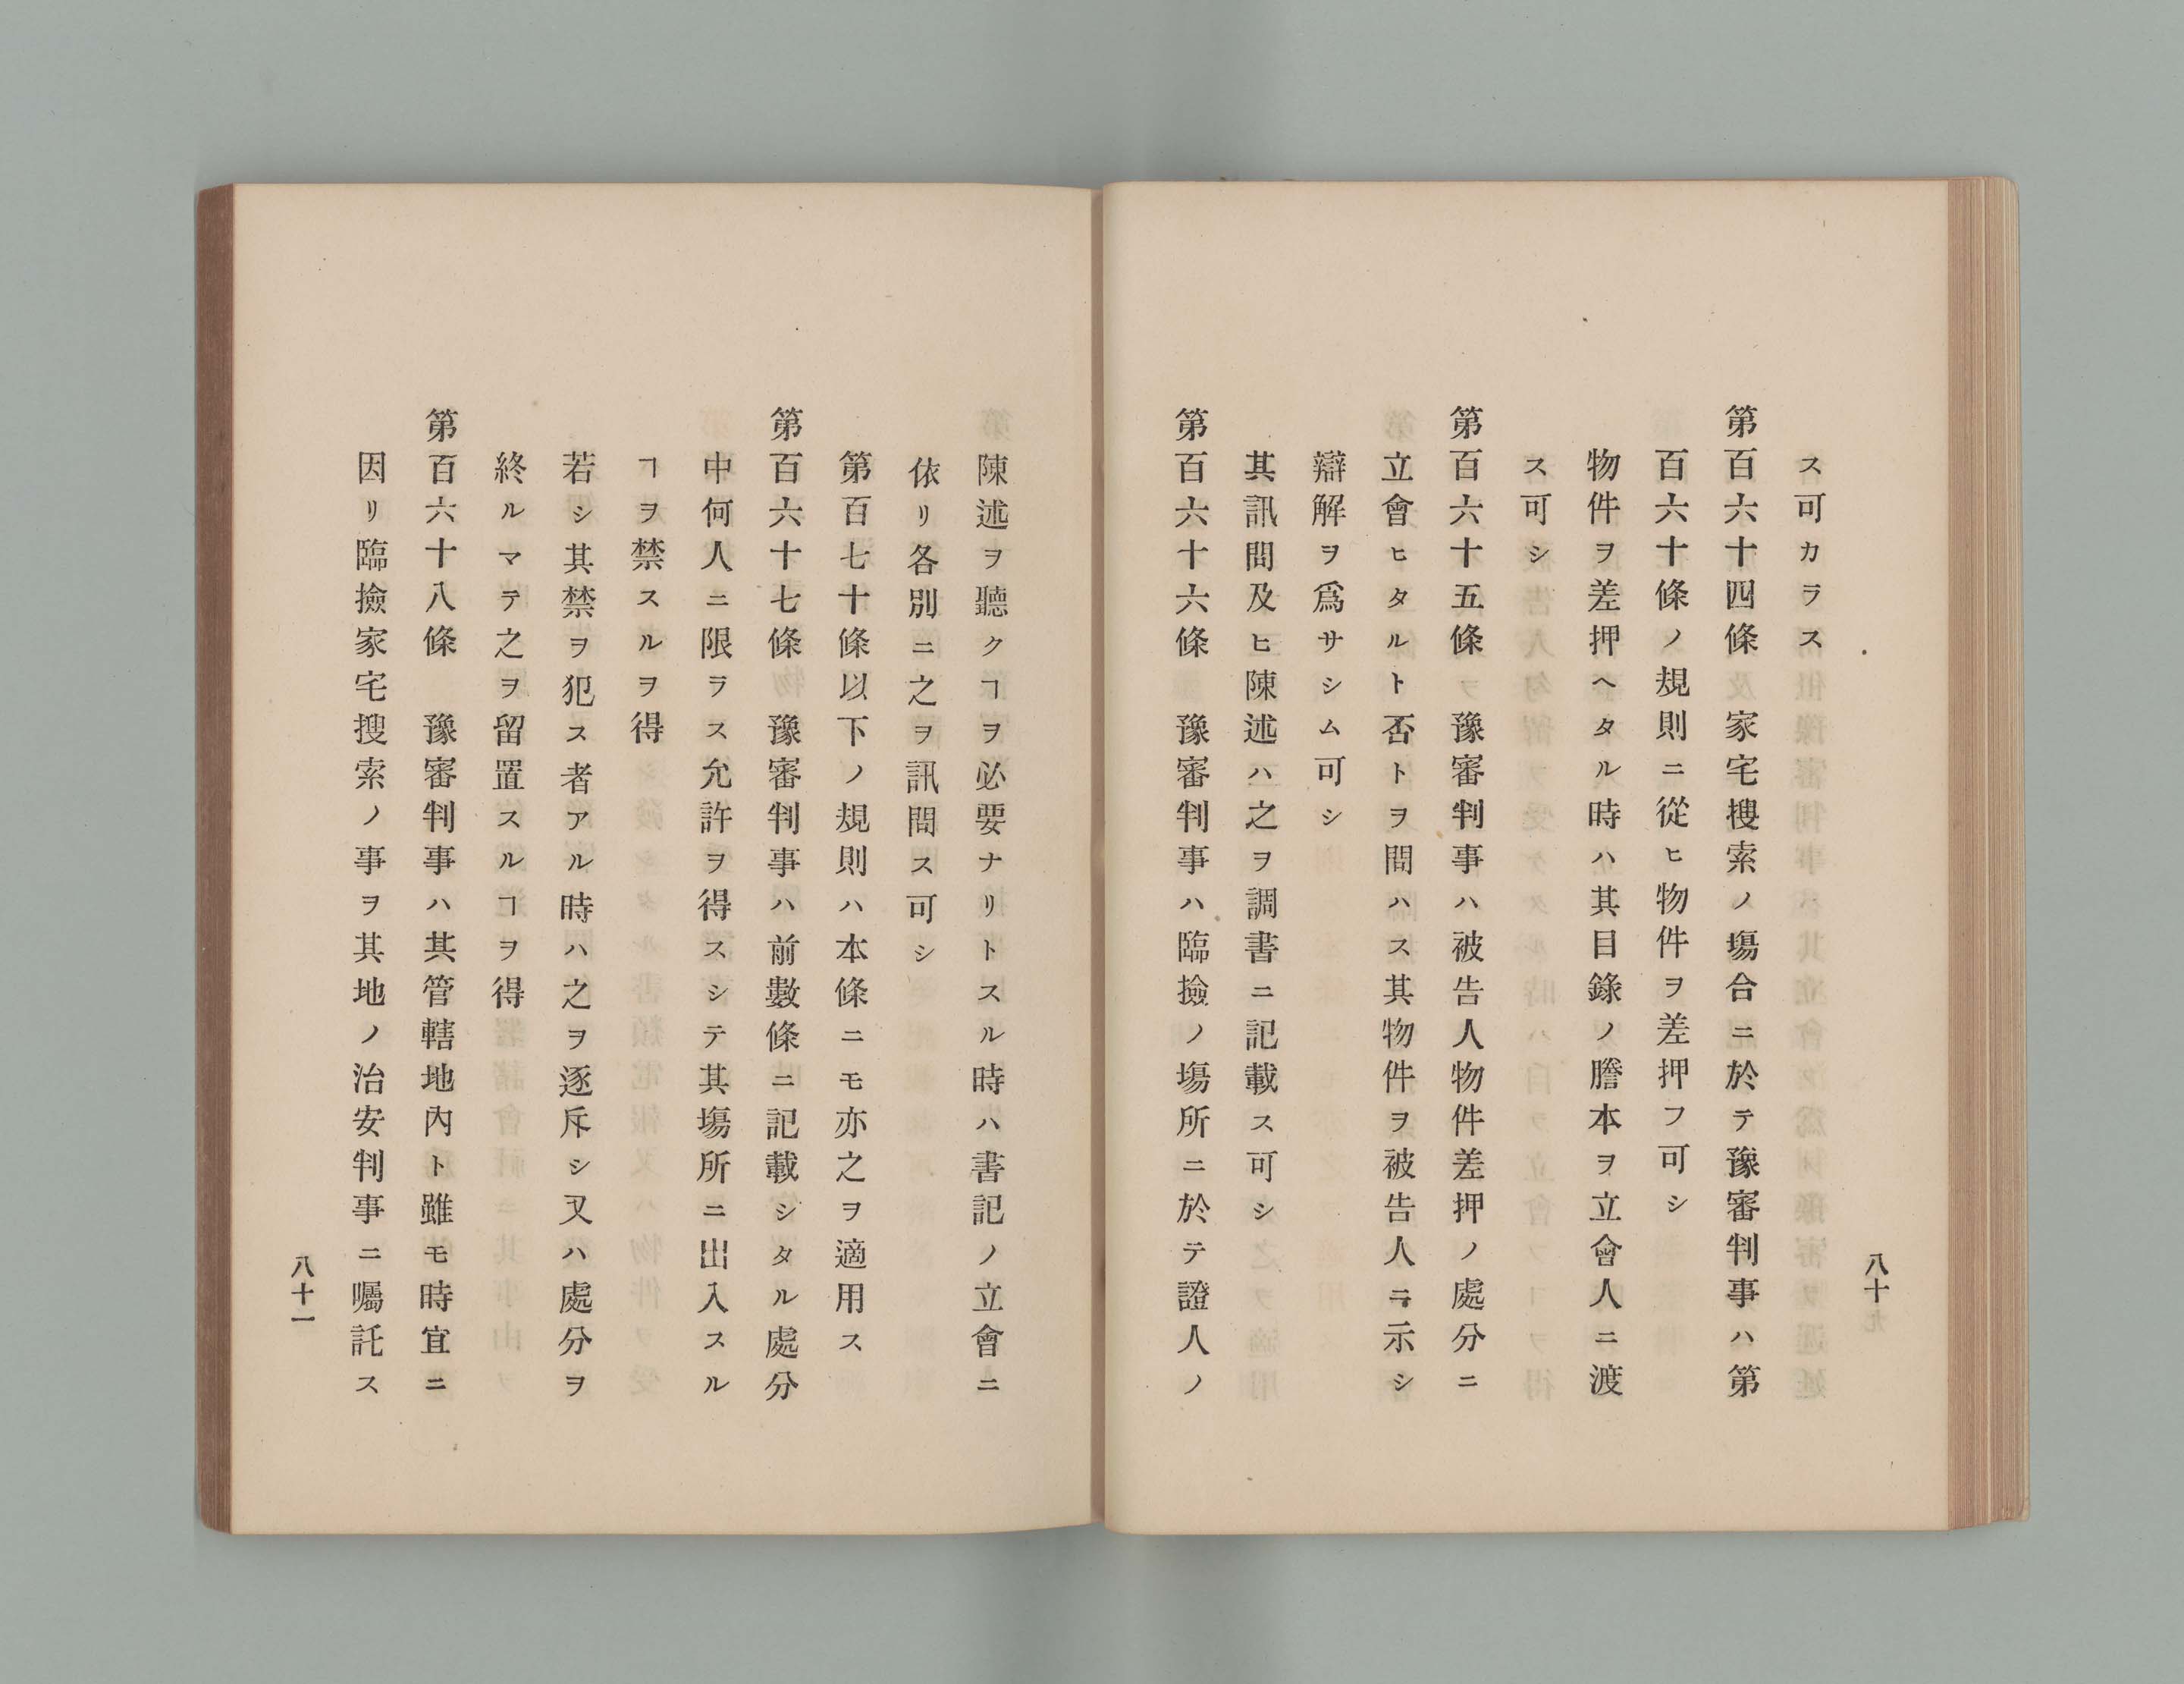 ス可カラス
第百六十四條　家宅搜索ノ塲合ニ於テ豫審判事ハ第
百六十條ノ規則ニ從ヒ物件ヲ差押フ可シ
物件ヲ差押ヘタル時ハ其目錄ノ謄本ヲ立會人ニ渡
ス可シ
第百六十五條　豫審判事ハ被告人物件差押ノ處分ニ
立會ヒタルト否トヲ問ハス其物件ヲ被告人ニ示シ
辯解ヲ爲サシム可シ
其訊問及ヒ陳述ハ之ヲ調書ニ記載ス可シ
第百六十六條　豫審判事ハ臨撿ノ塲所ニ於テ證人ノ
八十
陳述ヲ聽クヿヲ必要ナリトスル時ハ書記ノ立會ニ
依リ各別ニ之ヲ訊問ス可シ
第百七十條以下ノ規則ハ本條ニモ亦之ヲ適用ス
第百六十七條　豫審判事ハ前數條ニ記載シタル處分
中何人ニ限ラス允許ヲ得スシテ其塲所ニ出入スル
ヿヲ禁スルヲ得
若シ其禁ヲ犯ス者アル時ハ之ヲ逐斥シ又ハ處分ヲ
終ルマテ之ヲ留置スルヿヲ得
第百六十八條　豫審判事ハ其管轄地內ト雖モ時宜ニ
因リ臨撿家宅搜索ノ事ヲ其地ノ治安判事ニ囑託ス
八十一